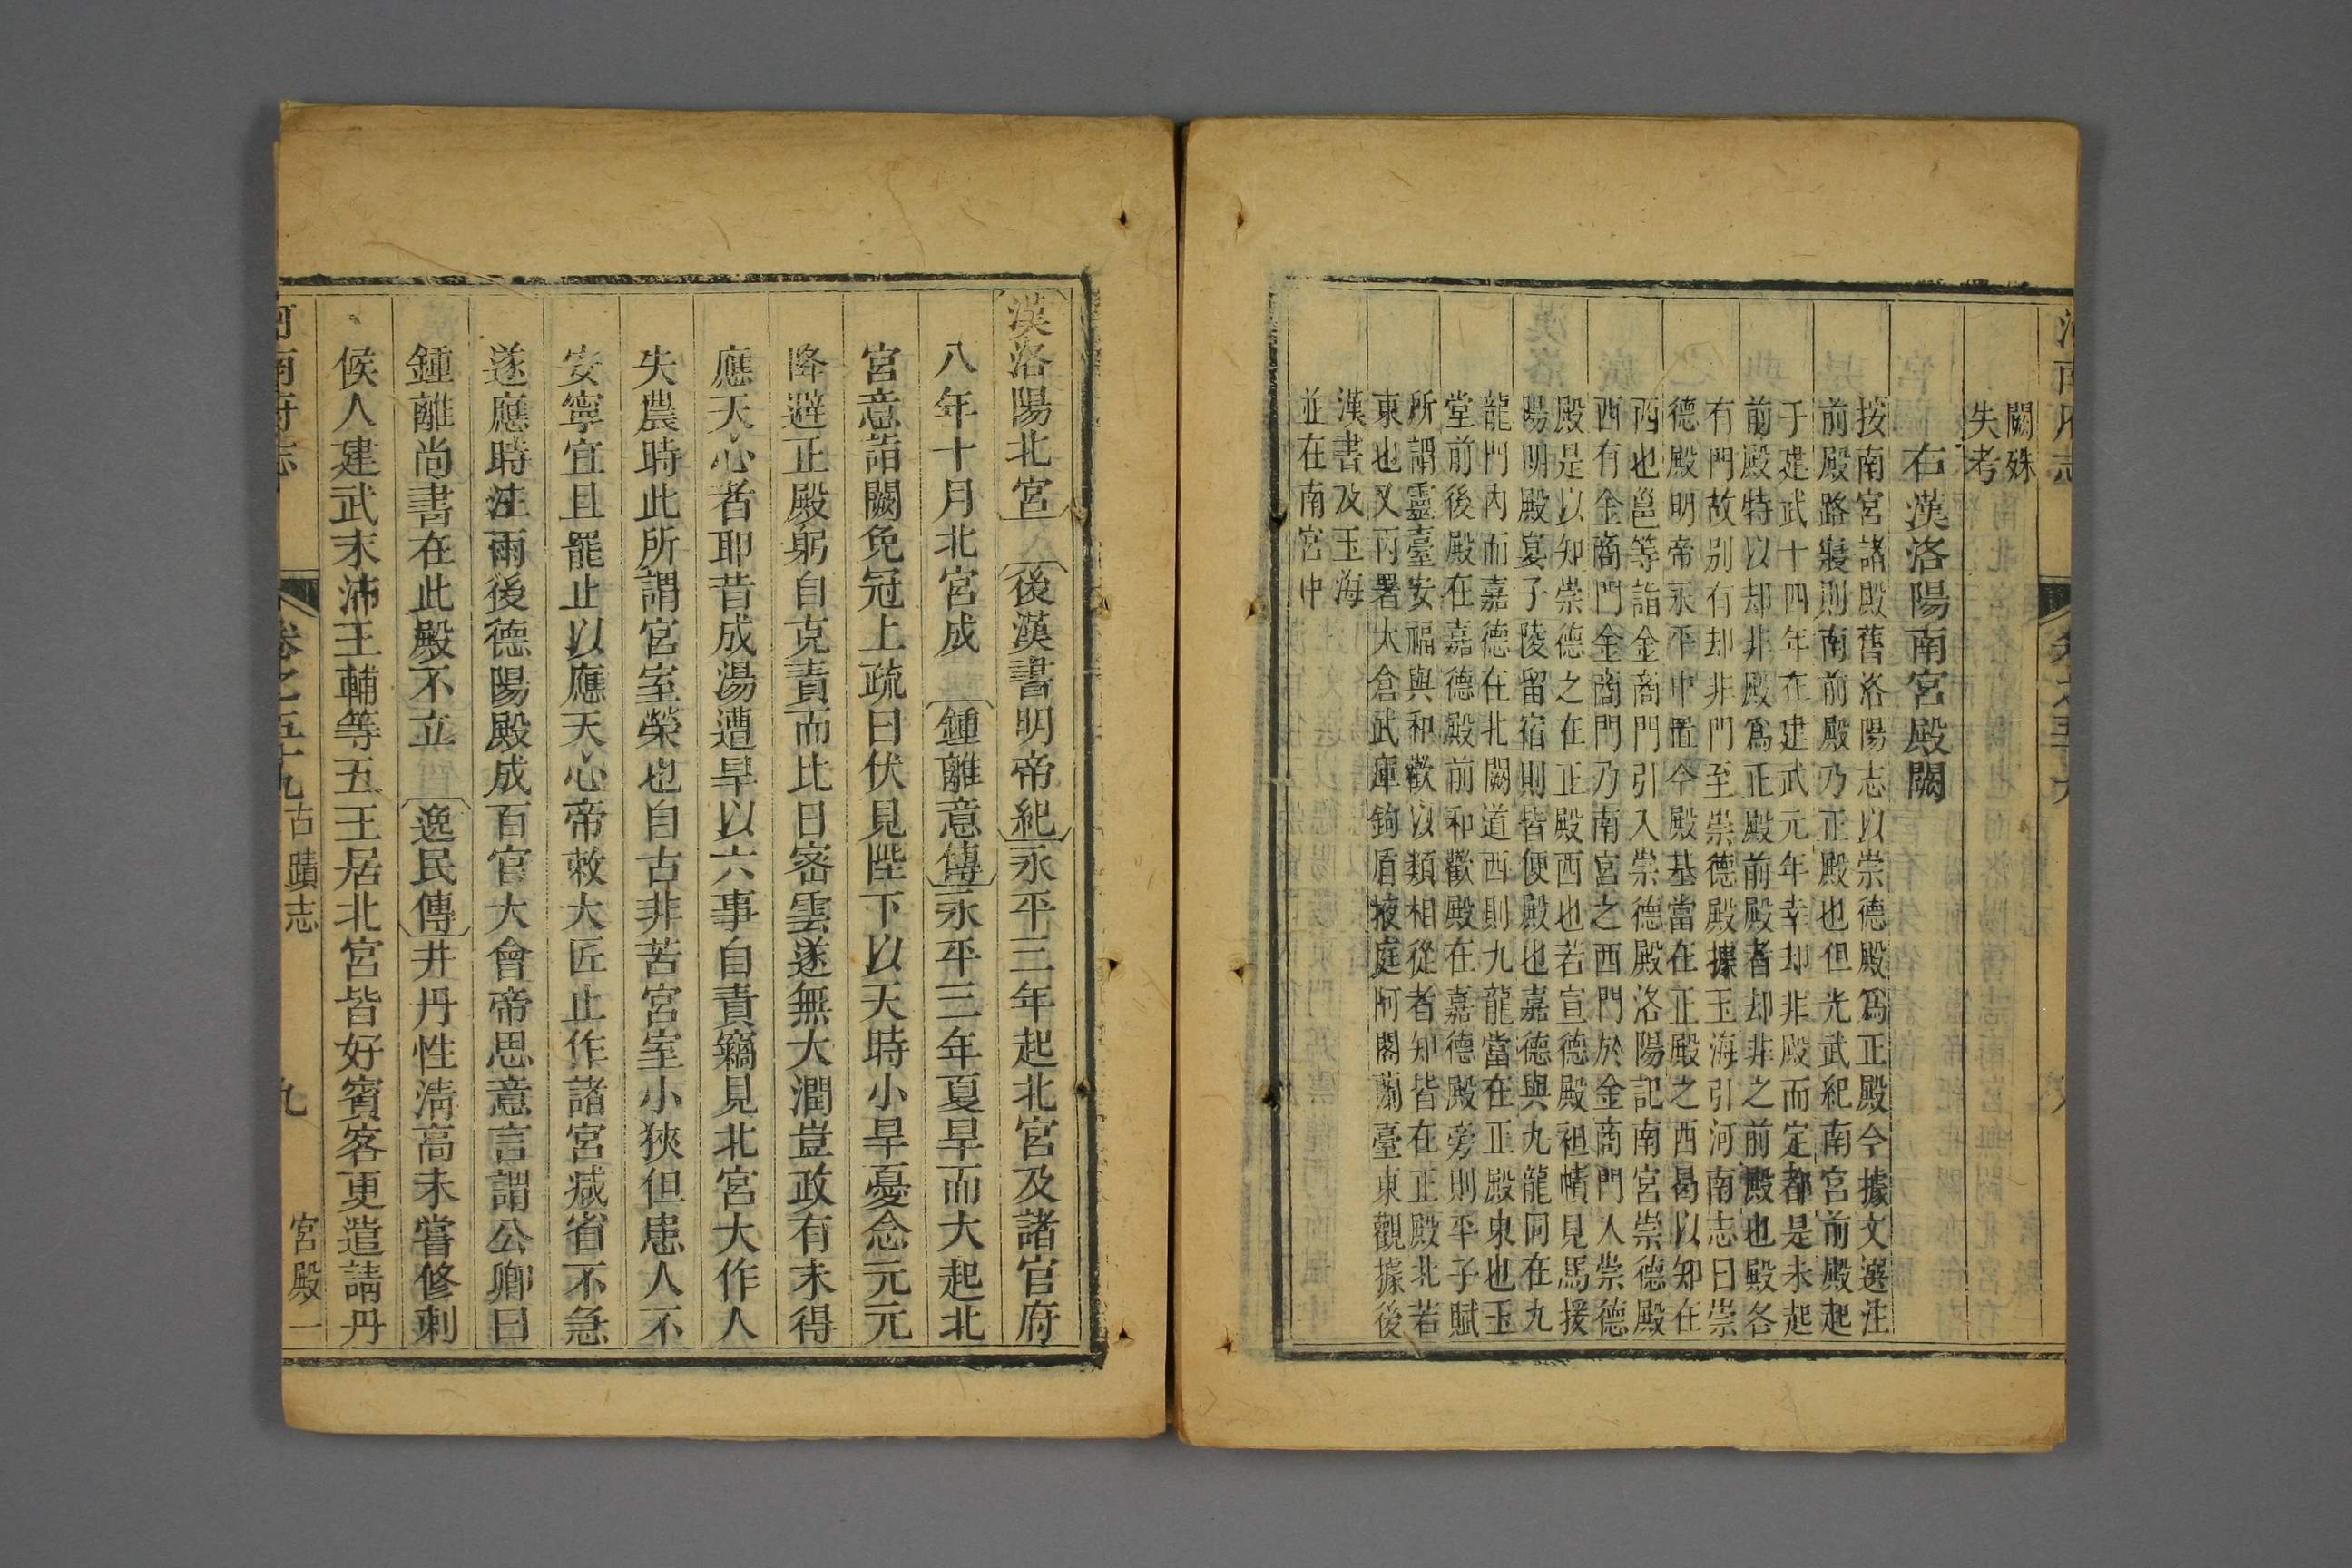 闕殊
失考
右漢洛陽南宮殿闕
按南宮諸殿舊洛陽志以崇德殿爲正殿今據文選注
前殿路寢則南前殿乃正殿也但光武紀南宮前殿起
于建武十四年在建武元年幸却非殿而定都是未起
前殿特以却非殿爲正殿前殿者却非之前殿也殿各
有門故别有却非門至崇德殿據玉海引河南志曰崇
德殿明帝永平中置今殿基當在正殿之西曷以知在
西也邕等詣金商門引入崇德殿洛陽記南宮崇德殿
西有金商門金商門乃南宮之西門於金商門人崇德
殿是以知崇德之在正殿西也若宣德殿袒幘見馬援
陽明殿宴子陵留宿則皆便殿也嘉德與九龍同在九
龍門內而嘉德在北闕道西則九龍當在正殿東也玉
堂前後殿在嘉德殿前和歡殿在嘉德殿旁則平子賦
所謂靈臺安福與和歡以類相從者知皆在正殿北若
東也又丙署太倉武庫鉤盾掖庭阿閣蘭臺東觀據後
漢書及玉海
並在南宮中
漢洛陽北宮 後漢書明帝紀永平三年起北宮及諸官府
八年十月北宮成 鍾離意傳永平三年夏旱而大起北
宮意詣闕免冠上疏曰伏見陛下以天時小旱憂念元元
降避正殿躬自克責而比日密雲遂無大潤豈政有未得
應天心者耶昔成湯遭旱以六事自責竊見北宮大作人
失農時此所謂宮室榮也自古非苦宮室小狹但患人不
安寧宜且罷止以應天心帝敕大匠止作諸宮減省不急
遂應時澍雨後德陽殿成百官大會帝思意言謂公卿曰
鍾離尚書在此殿不立 逸民傳井丹性清高未嘗修刺
候人建武末沛王輔等五王居北宮皆好賓客更遣請丹
河南府志 卷之五十九 古蹟志 九 宮殿一